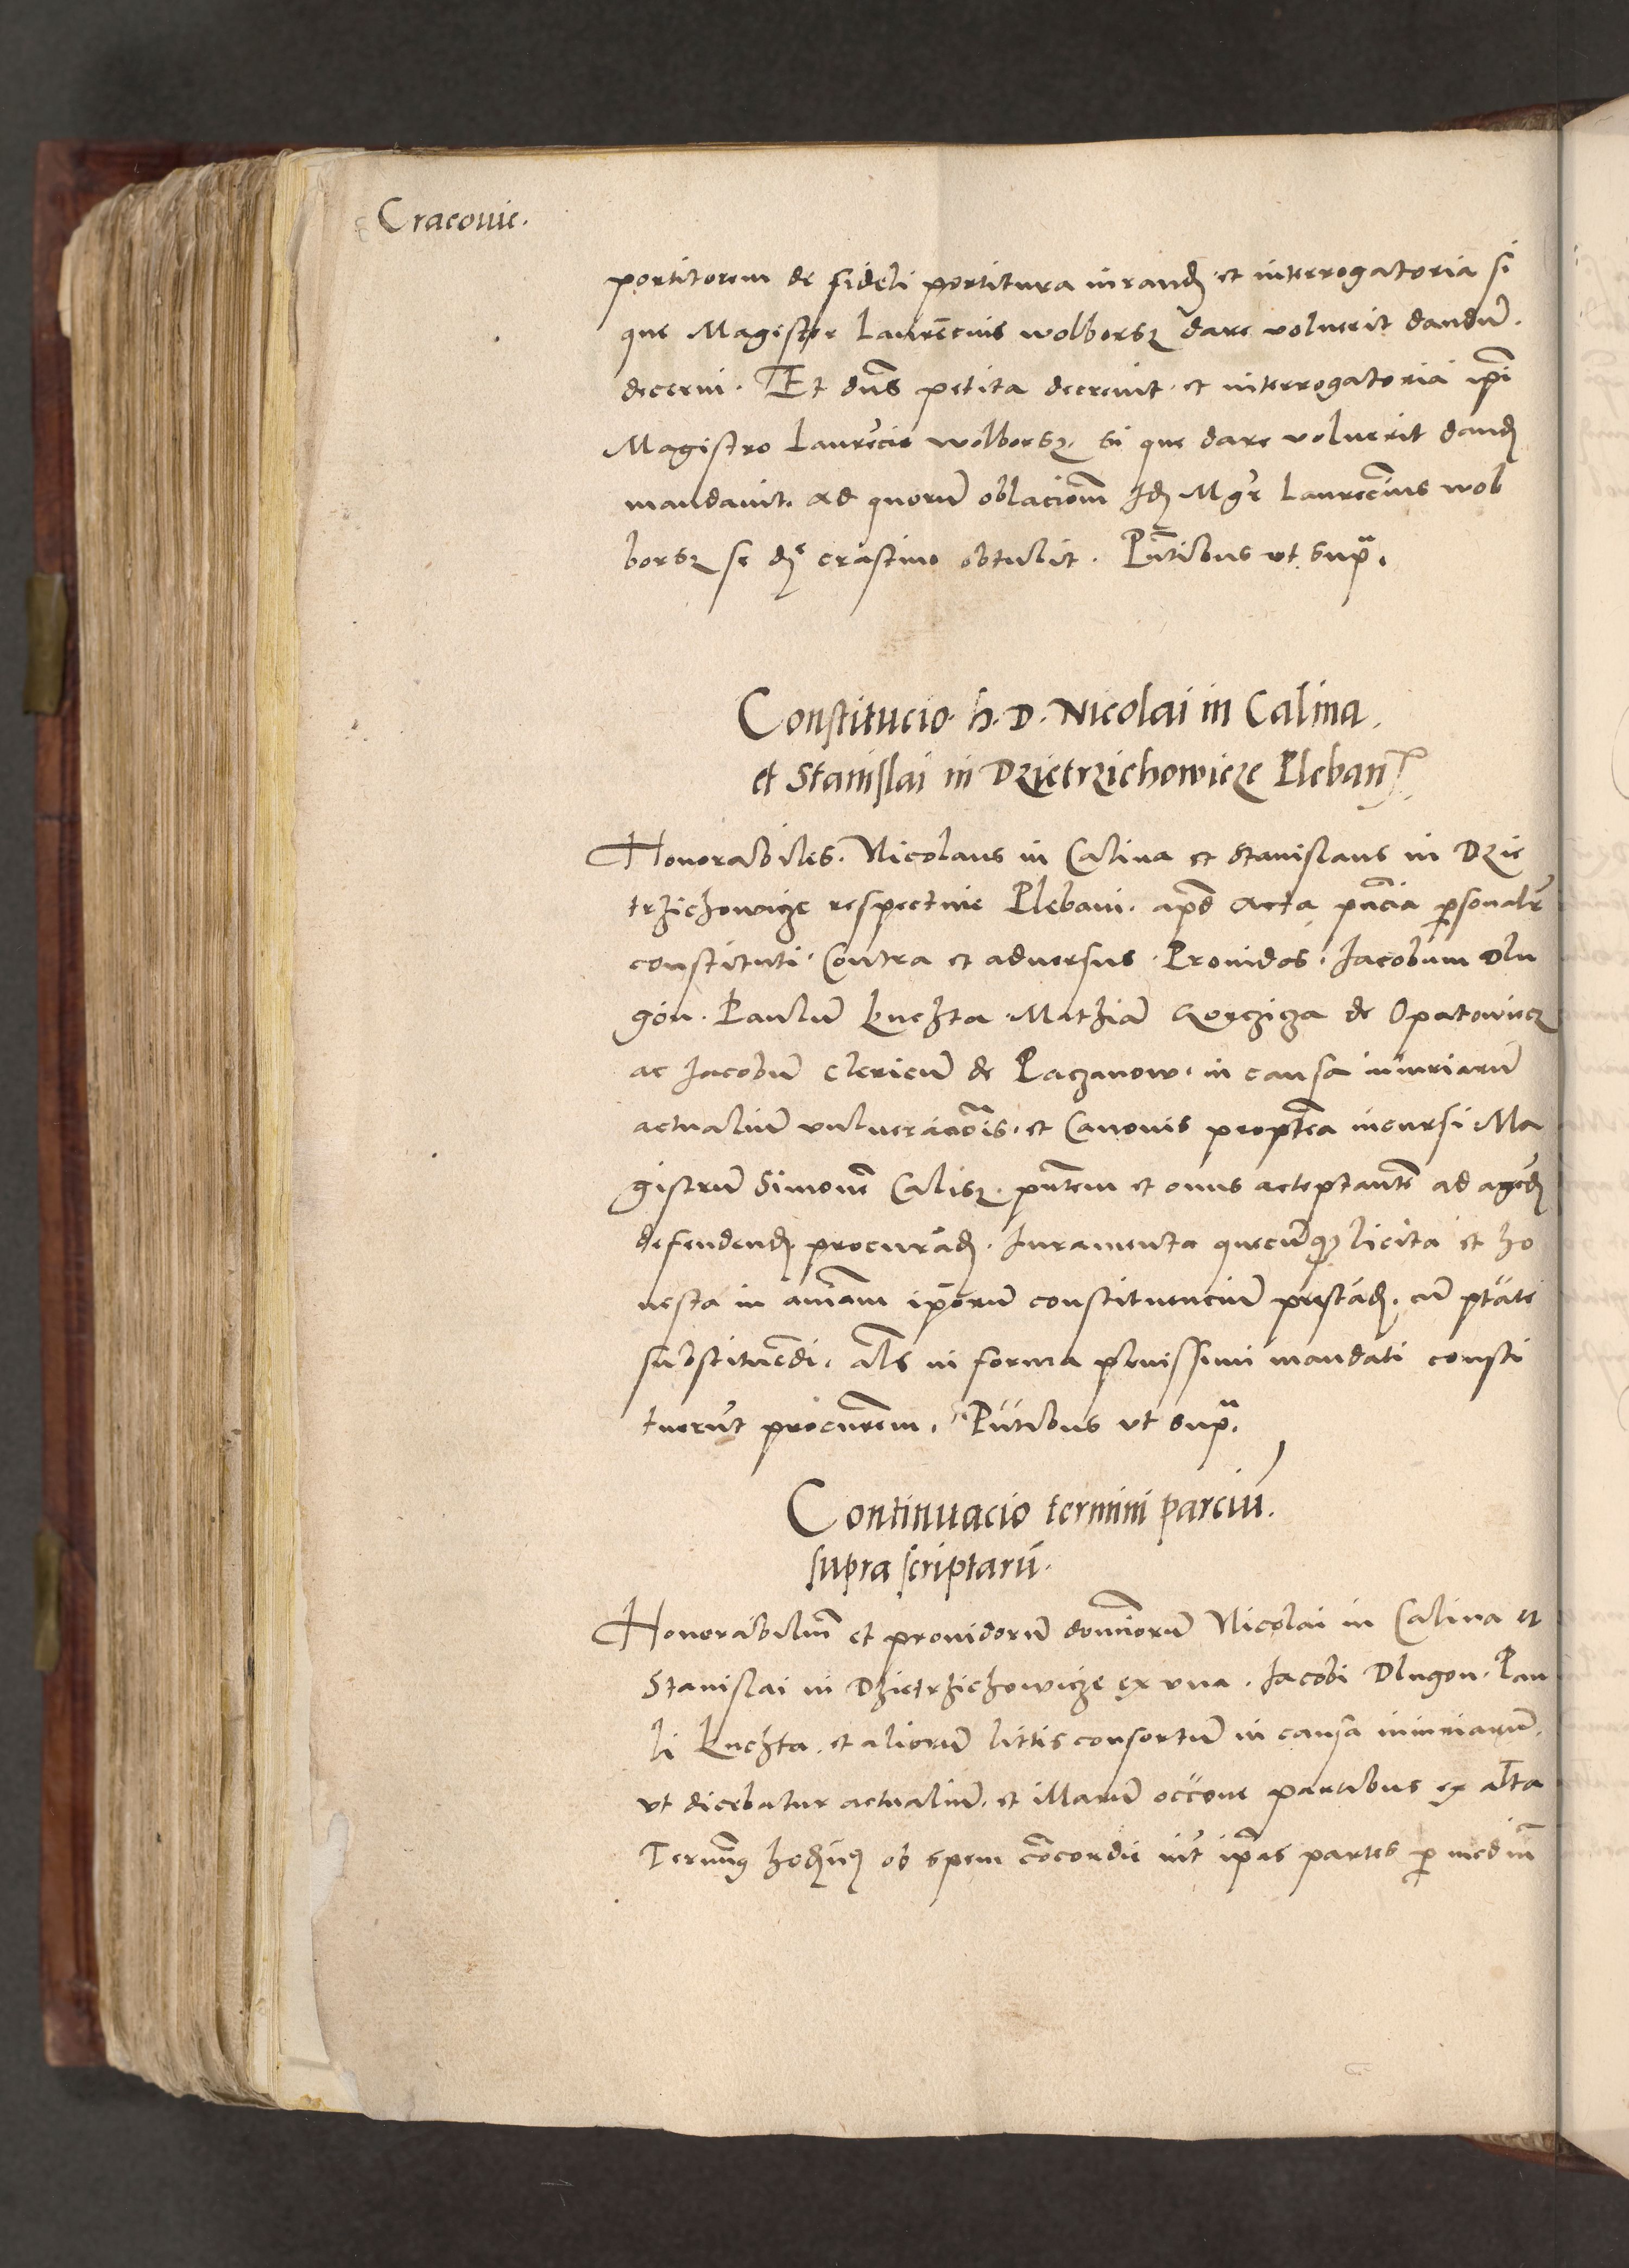 Cracouie.
portitorem de fideli portitura iurand et interrogatoria si
que Magister Laurēcius wolborsz dare voluerit dandū.
decerni. Et dn̄s petita decreuit et interrogatoria ip̄i
Magistro Laurēcio wolborsz. si que dare voluerit dand
mandauit. ad quorū oblacionē Idē Mgr̄ Laurēcius wol
borsz se die crastino obtulit. Pn̄tibus vt supᵃ.
Constitucio. h. D. Nicolai in Calina.
et Stanislai in Dzietrzichowicze Pleban
Honorabiles. Nicolaus in Calina et Stanislaus in Dzie
trzichowicze respectiue Plebani. apd Acta pn̄cia ꝑsonalr̄
constituti. Contra et aduersus. Prouidos. Iacobum Dlu
gon. Paulū Kuchta. Mathiā de Opatowiecz
ac Iacobū clericū de Paczanow. in causa iniuriarū
actualiū vulneracōis. et Canonis propt̄ea incursi. Ma
gistrū Simonē Calisz. pn̄tem et onus acceptantē ad agēd
defendend. procurād. Iuramenta quecūqꝫ licita et ho
nesta in aīam ip̄orū constituenciū prestād. cū ptāte
substituēdi. als̄ in forma plenissimi mandati consti
tuerūt procur̄em. Pn̄tibus vt supᵃ.
Continuacio termini parciū.
supra scriptarū.
Honorabiliū et prouidorū domīorū Nicolai in Calina et
Stanislai in Dzietrzichowicze ex vna. Iacobi Dlugon. Pau
li Kuchta. et aliorū littis consortū in causa iniuriarū.
vt dicebatur actualiū. et illarū occ̄one partibus ex alt̄a
Termīꝯ hodiernꝯ ob spem cōcordie int̄ ip̄as partes ꝑ mediū